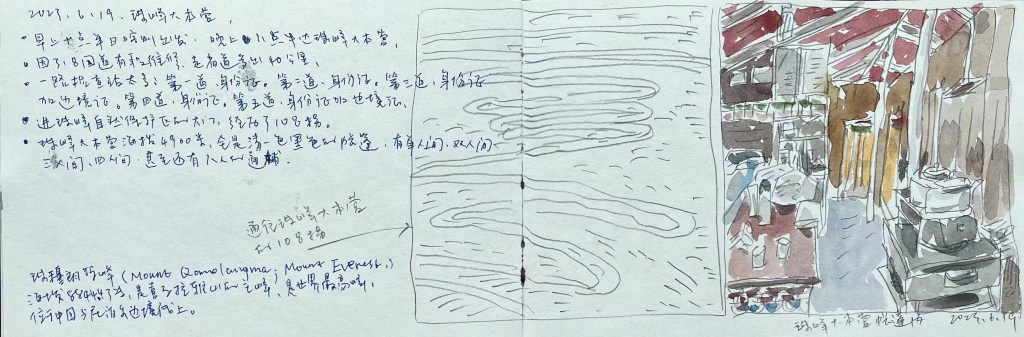 2023.6.19. 珠峰大本营.
• 早上十点半日喀则出发, 晚上八点半达珠峰大本营,
• 因318国道有段维修, 走省道多出40公里,
• 一路检查站太多; 第一道, 身份证。第二道, 身份证, 第三道, 身份证
加边境证。第四道, 身份证。第五道, 身份证加边境证.
• 进珠峰自然保护区的大门, 经历了108拐.
• 珠峰大本营海拔4900米, 全是清一色黑色的帐篷, 有单人间, 双人间
三人间, 四人间, 甚至还有八人的通铺.
通往珠峰大本营
的108拐
珠穆朗玛峰 (Mount Qomolangma; Mount Everest,)
海拔8848米, 是喜马拉雅山的主峰, 是世界最高峰,
位于中国与尼泊尔边境线上。
珠峰大本营帐篷内 2023.6.19